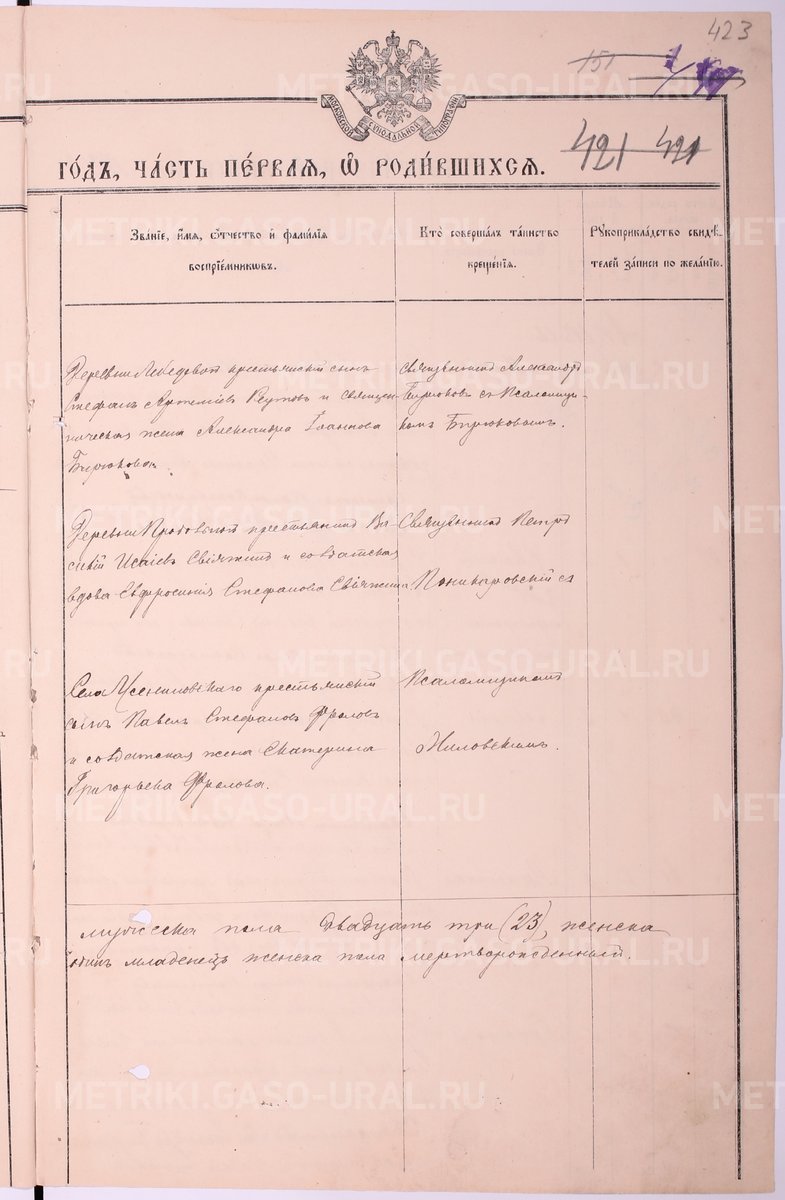 423
151
421 421
МОСКОВСКОЙ СѴНОДАЛЬНОЙ ТИПОГРАФІИ
го́дъ, ча́сть пе́рвая, ѡ҆ роди́вшихся.
Зва́нїе, и҆́мѧ, ѻ҆́тчество и҆ фами́лїѧ
воспрїе́мникѡвъ.
Кто̀ соверша́лъ та́инство
креще́нїѧ.
Рꙋкоприкла́дство свидѣ́-
телей за́писи по жела́нїю.
Деревни Лебедовой крестьянскій сынъ
Стефанъ Артеміевъ Реутовъ и священ
ническая жена Александра Іоаннова
Бирюкова.
Священникъ Александръ
Бирюковъ съ Псаломщи-
комъ Бирюковымъ.
Деревни крестьянинъ Ва-
силій Исаіевъ Свіяжинъ и солдатская
вдова Евфросинія Стефанова Свіяжина
Священникъ Петръ
Пономаровскій съ
Села Усениновскаго крестьянскій
сынъ Павелъ Стефановъ Фроловъ
и солдатская жена Екатерина
Григорьева Фролова.
Псаломщикомъ
Ниловскимъ.
мужеска пола двадцать три (23), женска
одинъ младенецъ женска пола мертворожденный.
METRIKI.GASO-URAL.RU